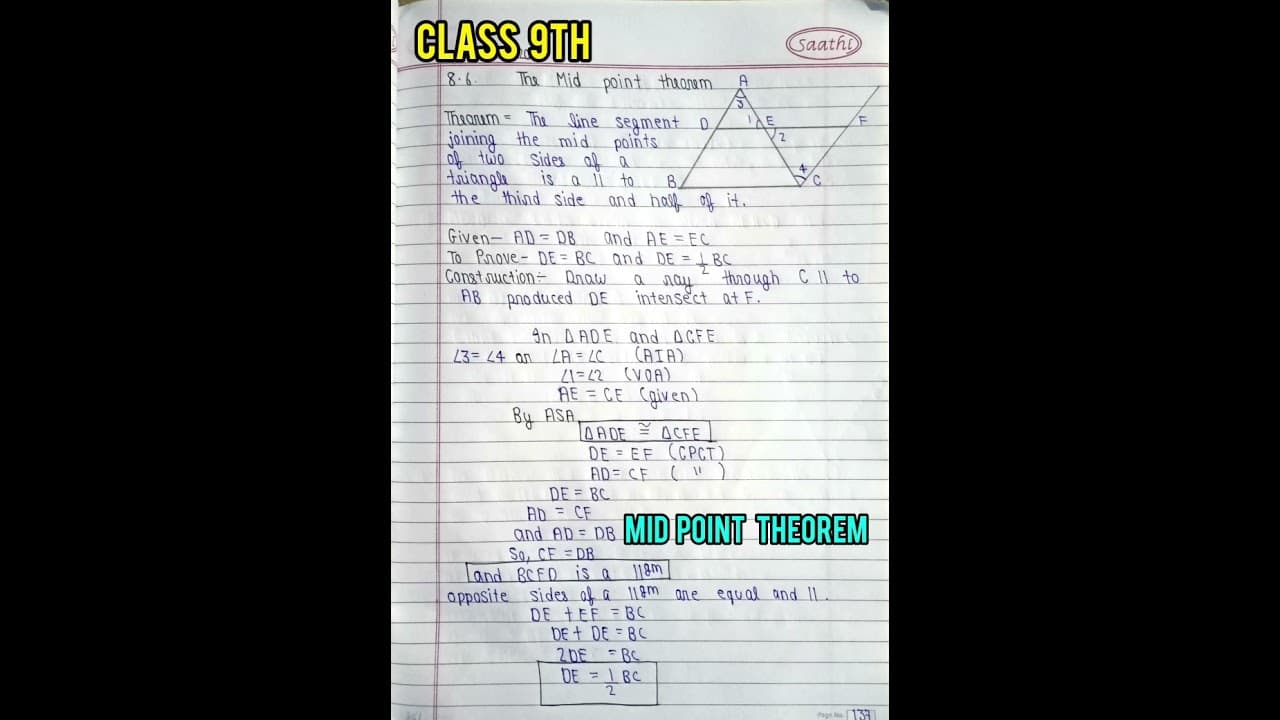 CLASS 9TH
Saathi
8.6. The Mid point theorem
Theorem = The line segment
joining the mid points
of two sides of a
triangle is a || to
the third side and half of it.
A
3
D 1 E F
2
4
B C
Given- AD = DB and AE = EC
To Prove- DE = BC and DE = 1/2 BC
Construction ÷ Draw a ray through C || to
AB produced DE intersect at F.
In △ADE and △CFE
∠3= ∠4 or ∠A = ∠C (AIA)
∠1=∠2 (VOA)
AE = CE (given)
By ASA
△ADE ≅ △CFE
DE = EF (CPCT)
AD= CF ( " )
DE = BC
AD = CF
and AD = DB
So, CF = DB
MID POINT THEOREM
and BCFD is a ||gm
opposite sides of a ||gm are equal and ||.
DE + EF = BC
DE + DE = BC
2DE = BC
DE = 1/2 BC
Page No. 137